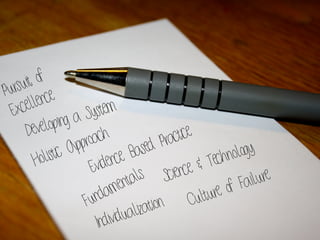 Pursuit of
Excellence
Developing a System
Holistic Approach
Evidence Based Practice
Fundamentals Science & Technology
Individualization Culture of Failure